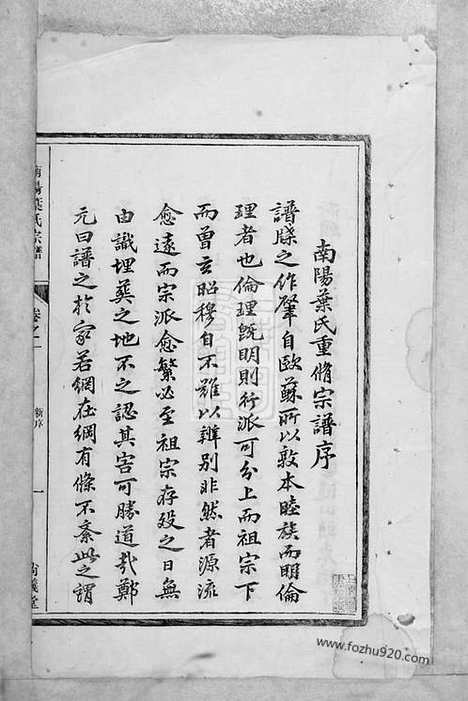 南陽葉氏重脩宗譜序
譜牒之作肇自歐蘇所以敦本睦族而明倫
理者也倫理既明則行派可分上而祖宗下
而曾玄昭穆自不難以辨別非然者源流
愈遠而宗派愈繁必至祖宗存歿之日無
由識埋葬之地不之認其害可勝道哉鄭
元曰譜之於家若網在綱有條不紊此之謂
南陽葉氏宗譜
卷之一
新序
一
尚義堂
www.fozhu920.com